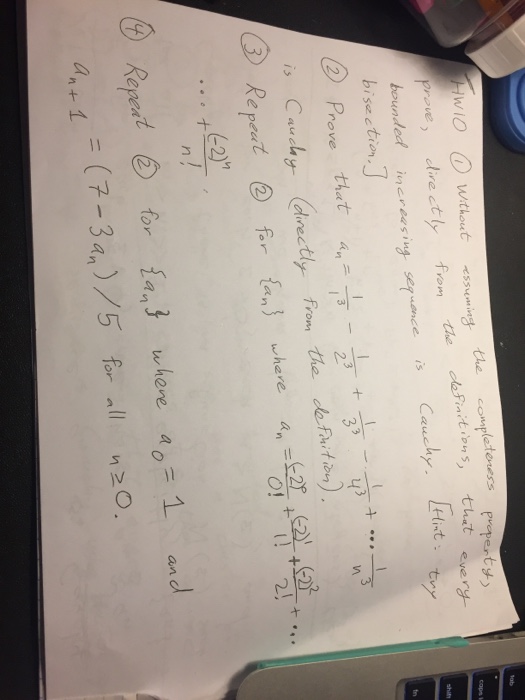 HW10 ① Without assuming the completeness property,
prove, directly from the definitions, that every
bounded increasing sequence is Cauchy. [Hint: try
bisection.]
② Prove that aₙ = 1/1³ - 1/2³ + 1/3³ - 1/4³ + ... 1/n³
is Cauchy (directly from the definition).
③ Repeat ② for {aₙ} where aₙ = (-2)⁰/0! + (-2)¹/1! + (-2)²/2! + ...
... + (-2)ⁿ/n!.
④ Repeat ② for {aₙ} where a₀ = 1 and
aₙ₊₁ = (7 - 3aₙ)/5 for all n ≥ 0.
tab
caps lock
shift
fn